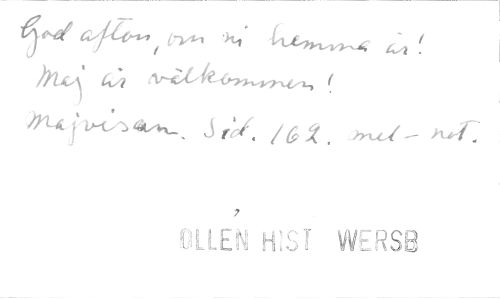 God afton, om ni hemma är!
Maj är välkommen!
Majvisan. Sid. 162. mel-not.
OLLEN HIST WERSB